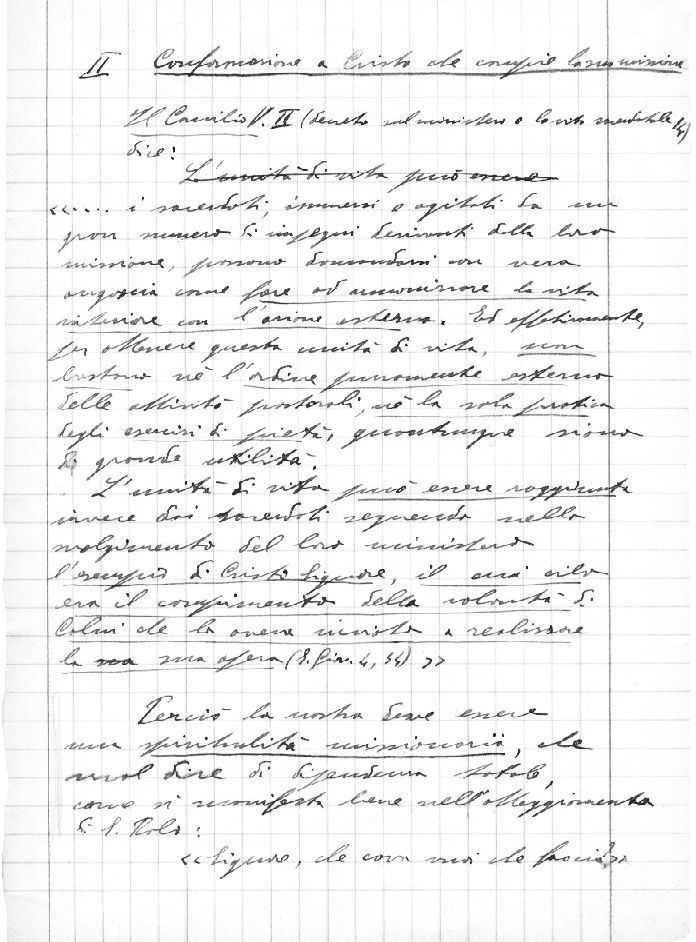 II Conformazione a Cristo che compie la sua missione
Il Concilio V. II (decreto sul ministero e la vita sacerdotale 14)
dice:
L'unità di vita può essere
«.... i sacerdoti, immersi e agitati da un
gran numero di impegni derivanti dalla loro
missione, possono domandarsi con vera
angoscia come fare ad armonizzare la vita
interiore con l'azione esterna. Ed effettivamente,
per ottenere questa unità di vita, non
bastano né l'ordine puramente esterno
delle attività pastorali, né la sola pratica
degli esercizi di pietà, quantunque siano
di grande utilità.
L'unità di vita può essere raggiunta
invece dai sacerdoti seguendo nello
svolgimento del loro ministero
l'esempio di Cristo Signore, il cui cibo
era il compimento della volontà di
Colui che lo aveva inviato a realizzare
la sua sua opera (S. Giov. 4, 34) »
Perciò la nostra deve essere
una spiritualità missionaria, che
vuol dire di dipendenza totale,
come si manifesta bene nell'atteggiamento
di S. Paolo:
«Signore, che cosa vuoi che faccia?»